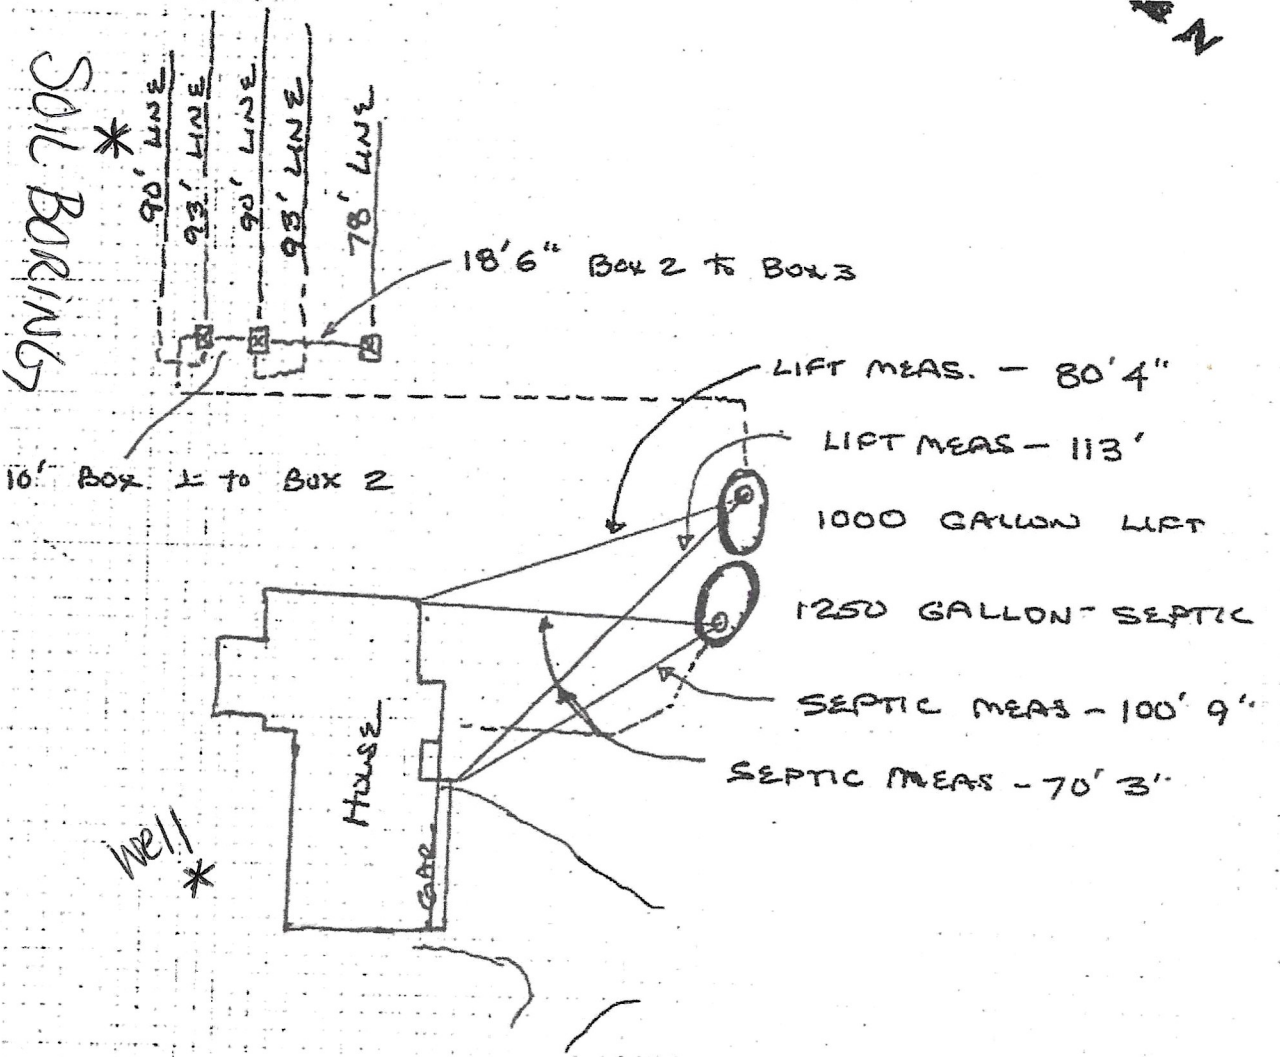 N
SOIL BORING
*
90' LINE
93' LINE
90' LINE
93' LINE
78' LINE
18'6" Box 2 to Box 3
LIFT MEAS. - 80'4"
LIFT MEAS - 113'
10' Box 1 to Box 2
1000 GALLON LIFT
1250 GALLON - SEPTIC
SEPTIC MEAS - 100' 9"
SEPTIC MEAS - 70' 3"
HOUSE
GAR.
Well
*